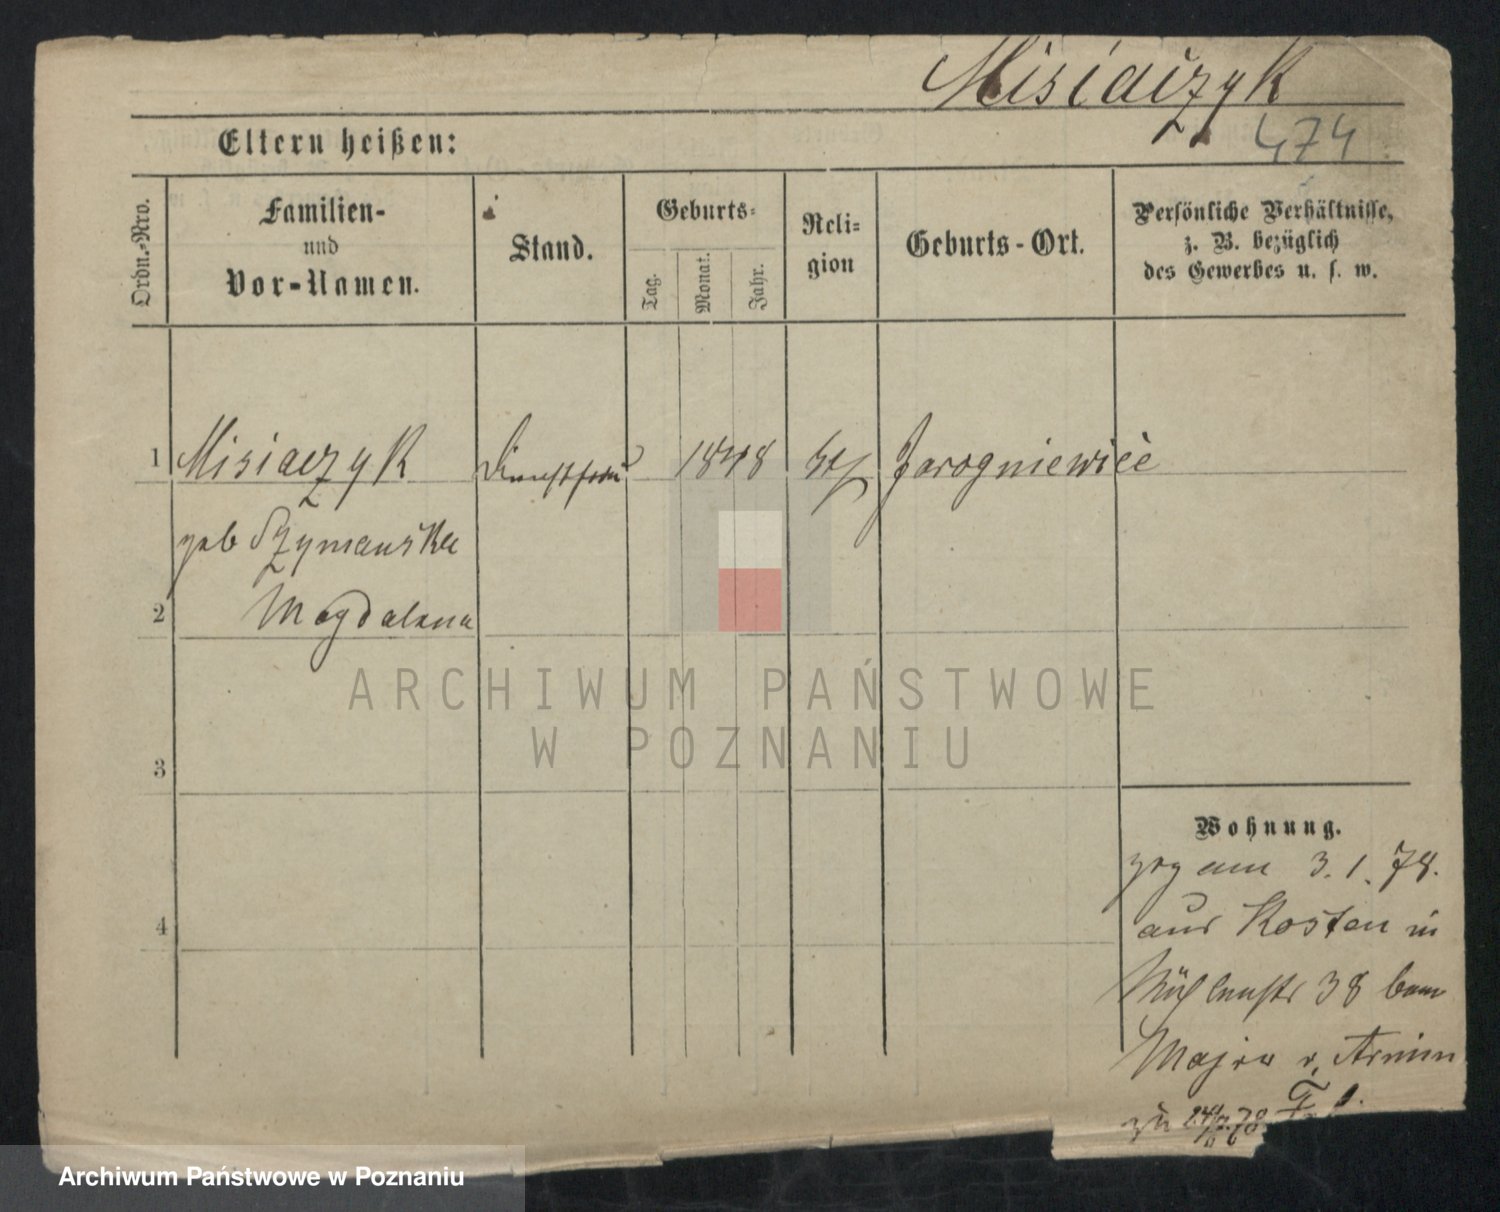 Misiaczyk
474
Eltern heißen:
Ordn.-Nro.
Familien-
und
Vor-Namen.
Stand.
Geburts-
Tag.
Monat.
Jahr.
Reli-
gion
Geburts-Ort.
Persönliche Verhältnisse,
z. B. bezüglich
des Gewerbes u. s. w.
1 Misiaczyk 1848 Jarogniewice
geb Szymanska
2 Magdalena
ARCHIWUM PAŃSTWOWE
W POZNANIU
3
Wohnung.
zog am 3.1.78.
4
aus Kosten in
Mühlenstr 38 beim
Major v. Arnim
zu
Archiwum Państwowe w Poznaniu